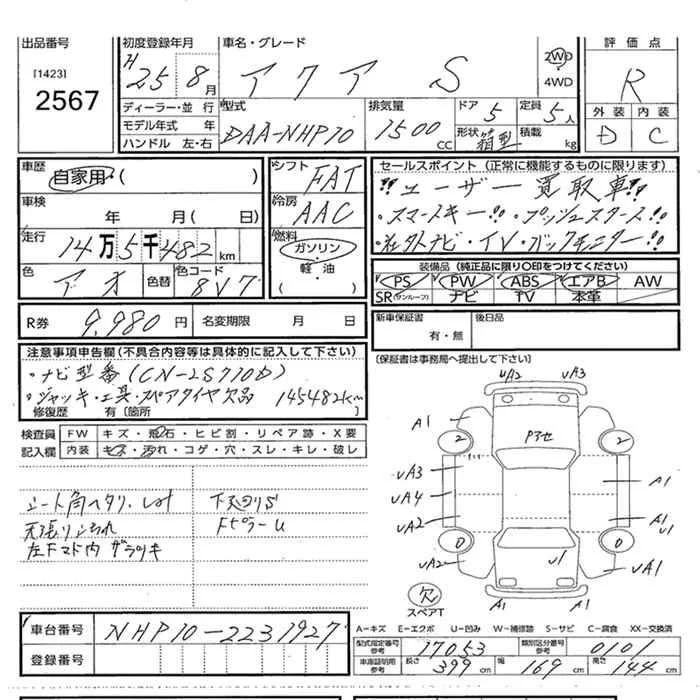 出品番号
[1423]
2567
初度登録年月
H25年8月
車名・グレード
アクア S
2WD
4WD
評価点
R
外装 内装
D C
ディーラー・並行
モデル年式 年
ハンドル 左・右
型式
DAA-NHP10
排気量
1500 CC
ドア 5
定員 5人
形状 箱型
積載 kg
車歴
自家用・( )
車検
年 月( 日)
走行
14万5千482km
色
アオ
色替
色コード
8V7
シフト
FAT
冷房
AAC
燃料
ガソリン・
軽・油
( )
セールスポイント(正常に機能するものに限ります)
!!ユーザー買取車!!
・スマートキー!!・プッシュスタート!!
・社外ナビ・TV・バックモニター!!
装備品(純正品に限り〇印をつけてください)
PS PW ABS エアB AW
SR(サンルーフ) ナビ TV 本革
R券 9,980円
名変期限 月 日
新車保証書
有・無
後日品
(保証書は事務局へ提出して下さい)
注意事項申告欄(不具合内容等は具体的に記入して下さい)
・ナビ型番(CN-2S710D)
・ジャッキ・工具・スペアタイヤ欠品 145482km
修復歴 有(箇所
検査員 FW キズ・飛石・ヒビ割・リペア跡・X要
記入欄 内装 キズ・汚れ・コゲ・穴・スレ・キレ・破レ
シート角ヘタリ、
下廻りS
天張り
FピラーU
左Fマド内
UA2 UA3
A1
2 2
Pアセ
UA3
UA4
UA2
A1
A1
U1
0 0
UA2
U1
UA1
欠
スペアT
A1 A1
A-キズ E-エクボ U-凹み W-補修跡 S-サビ C-腐食 XX-交換済
車台番号 NHP10-2231927
登録番号
型式指定番号 参考 17053
類別区分番号 参考 0101
車庫証明用 参考 長さ 399cm 幅 169cm 高さ 144cm